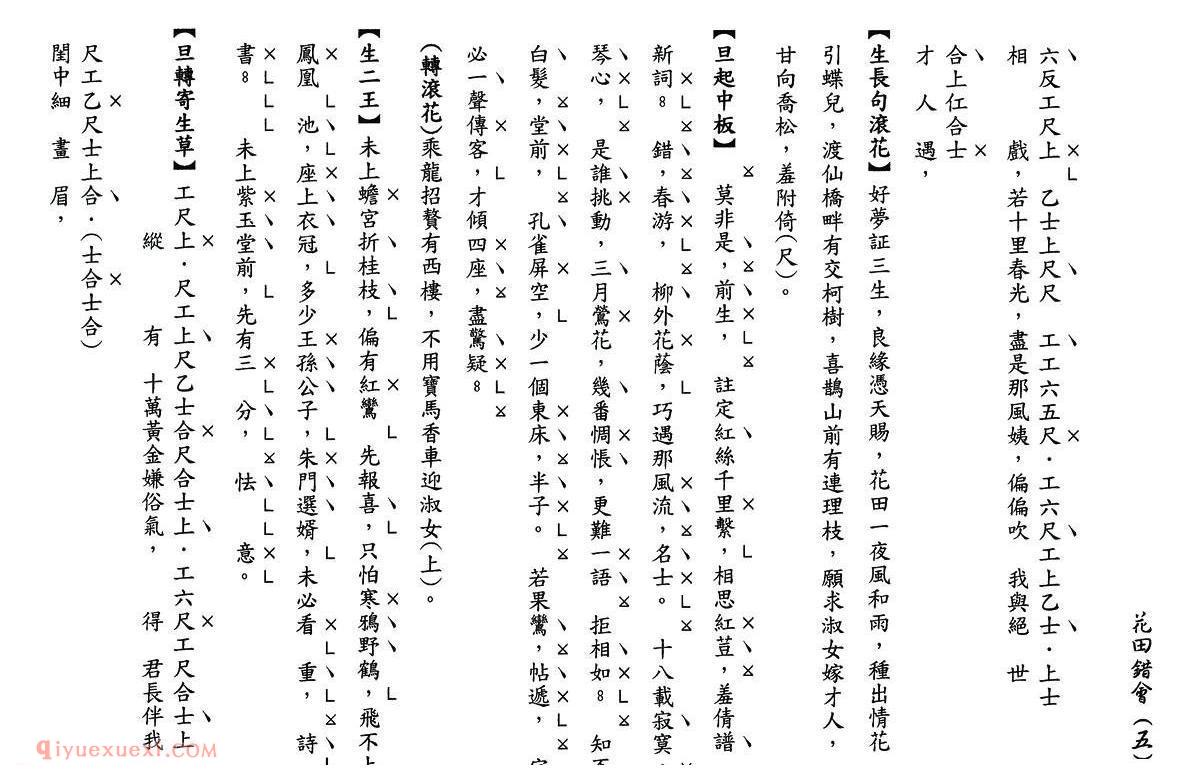 花田錯會（五）
六反工尺上　乙士上尺尺　工工六五尺．工六尺工上乙士．上士
相　　　戲，若十里春光，盡是那風姨，偏偏吹　我與絕　世
合上仜合士
才　人　遇，
【生長句滾花】好夢証三生，良緣憑天賜，花田一夜風和雨，種出情花
引蝶兒，渡仙橋畔有交柯樹，喜鵲山前有連理枝，願求淑女嫁才人，
甘向喬松，羞附倚（尺）。
【旦起中板】　莫非是，前生，　註定紅絲千里繫，相思紅荳，羞倩譜
新詞。　錯，春游，　柳外花蔭，巧遇那風流，名士。　十八載寂寞，
琴心，　是誰挑動，三月鶯花，幾番惆悵，更難一語　拒相如。　知
白髮，堂前，　孔雀屏空，少一個東床，半子。　若果鸞，帖遞，
必一聲傳客，才傾四座，盡驚疑。
（轉滾花）乘龍招贅有西樓，不用寶馬香車迎淑女（上）。
【生二王】未上蟾宮折桂枝，偏有紅鸞　先報喜，只怕寒鴉野鶴，飛不上
鳳凰　池，座上衣冠，多少王孫公子，朱門選婿，未必看　重，　詩
書。　　未上紫玉堂前，先有三　分，　怯　　意。
【旦轉寄生草】工尺上．尺工上尺乙士合尺合士上．工六尺工尺合士上
縱　　　有　十萬黃金嫌俗氣，　　得　君長伴我
尺工乙尺士上合．（士合士合）
閨中細　畫　眉，
qiyuexuexi.COM